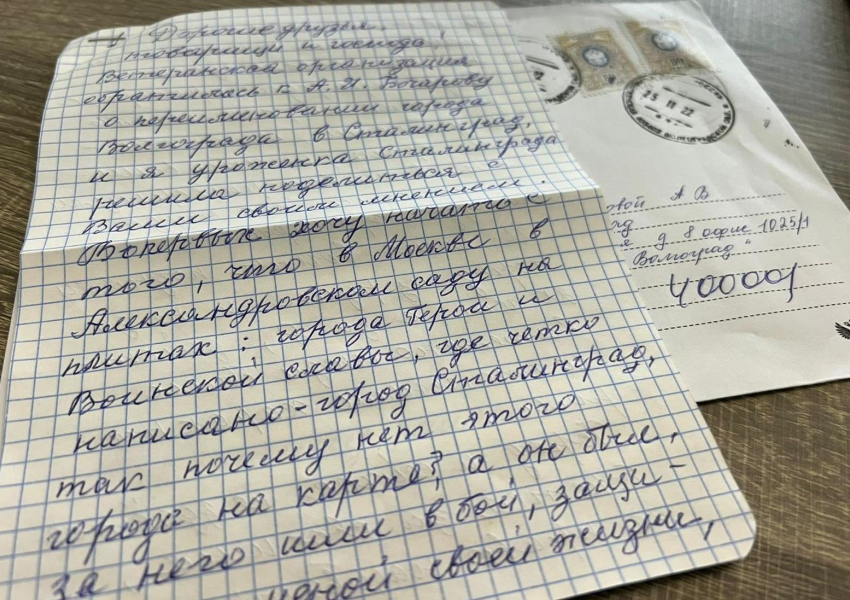 Дорогие друзья,
товарищи и господа!
Ветеранская организация
обратилась к А. И. Бочарову
о переименовании города
Волгограда в Сталинград,
и я уроженка Сталинграда
решила поделиться с
Вами своим мнением.
Вопервых хочу начать с
того, что в Москве в
Александровском саду на
плитах: города Герои и
Воинской славы, где четко
написано - город Сталинград,
так почему нет этого
города на карте? а он был,
за него шли в бой, защи-
ценой своей жизни,
25 11 22
вой А В
д 8 офис 1025/1
Волгоград"
400001